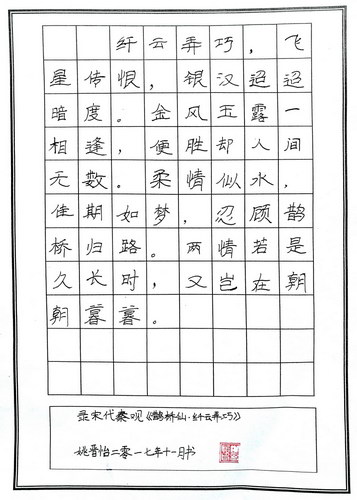 纤云弄巧，飞
星传恨，银汉迢迢
暗度。金风玉露一
相逢，便胜却人间
无数。柔情似水，
佳期如梦，忍顾鹊
桥归路。两情若是
久长时，又岂在朝
朝暮暮。
录宋代秦观《鹊桥仙·纤云弄巧》
姚晋怡二零一七年十一月书